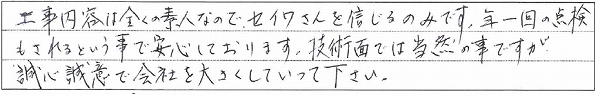 工事内容は全くの素人なので、セイワさんを信じるのみです。年一回の点検
もされるという事で安心しております。技術面では当然の事ですが
誠心誠意で会社を大きくしていって下さい。